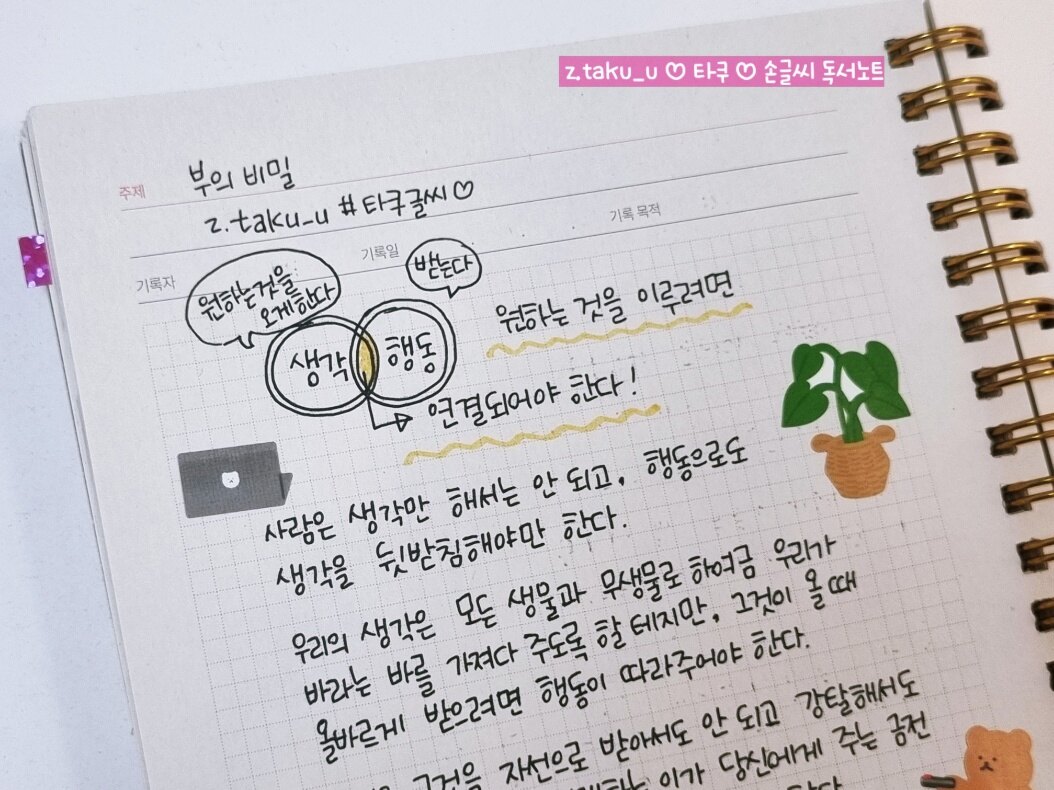 z.taku_u ♡ 타쿠 ♡ 손글씨 독서노트
주제 부의 비밀
z.taku_u #타쿠글씨♡
기록자 기록일 기록 목적
원하는것을
오게한다
받는다
생각 행동
원하는 것을 이루려면
연결되어야 한다!
사람은 생각만 해서는 안 되고, 행동으로도
생각을 뒷받침해야만 한다.
우리의 생각은 모든 생물과 무생물로 하여금 우리가
바라는 바를 가져다 주도록 할 테지만, 그것이 올 때
올바르게 받으려면 행동이 따라주어야 한다.
그것을 자선으로 받아서도 안 되고 강탈해서도
이가 당신에게 주는 금전